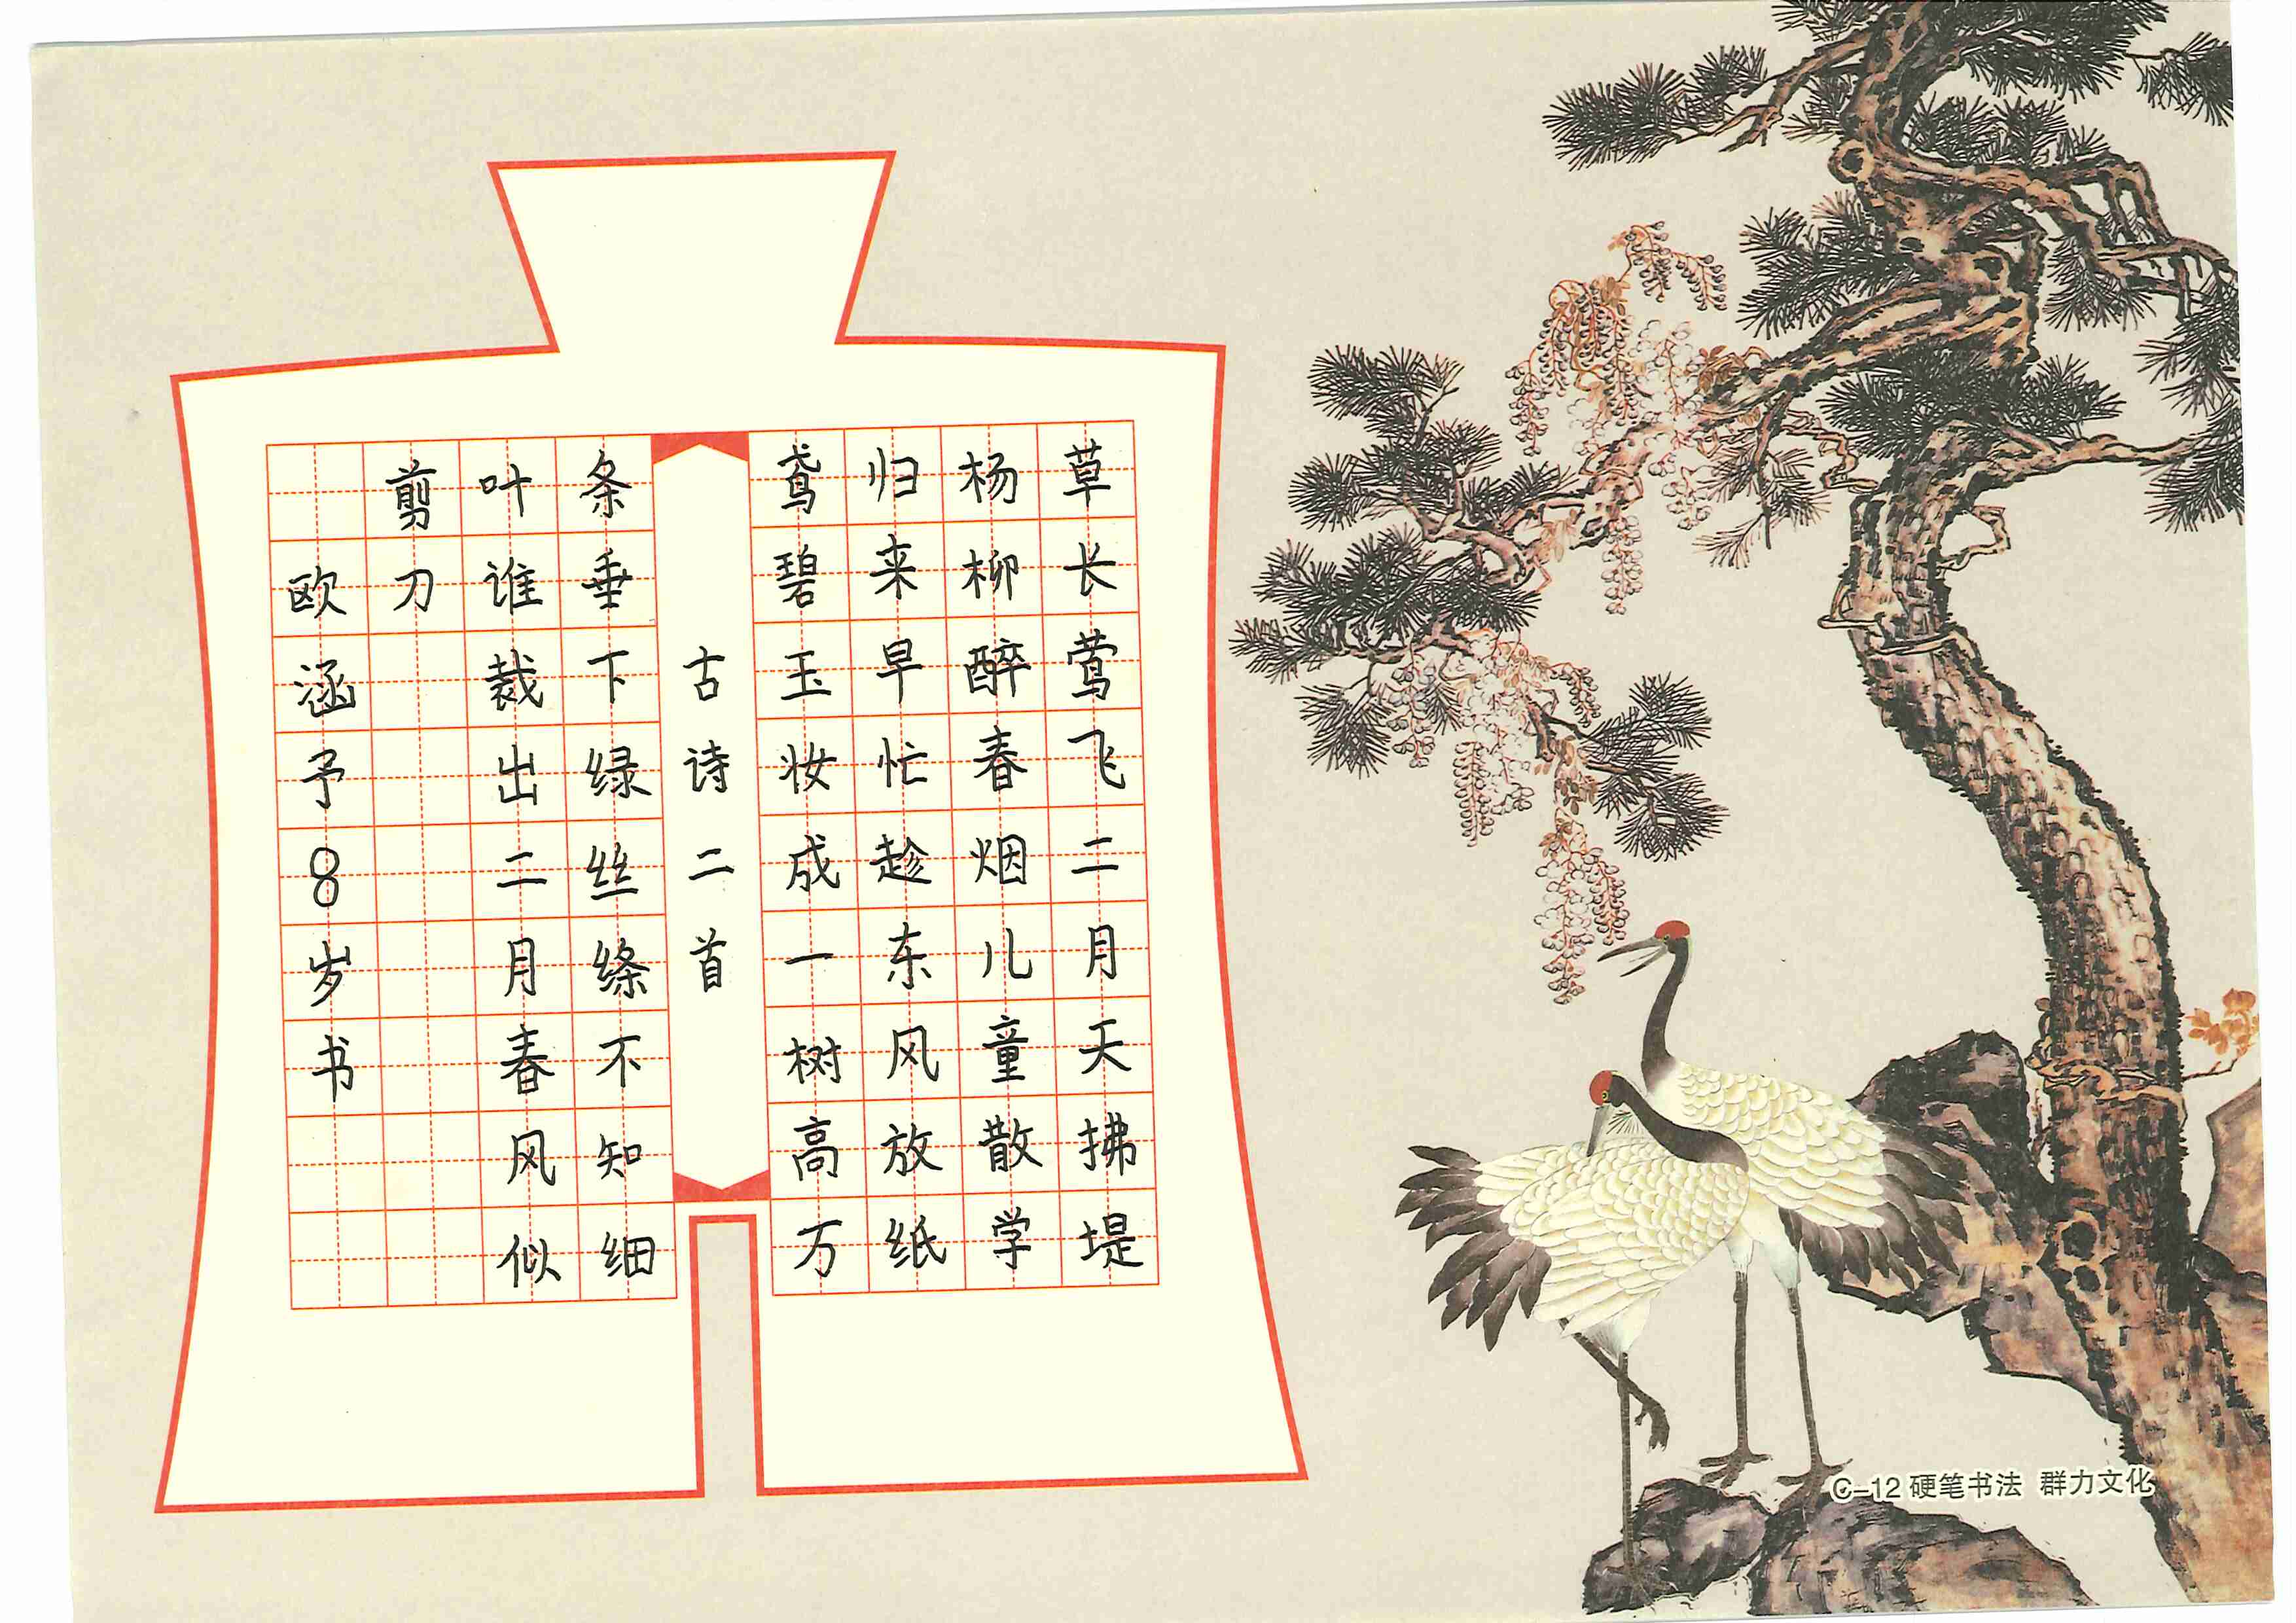 草长莺飞二月天拂堤
杨柳醉春烟儿童散学
归来早忙趁东风放纸
鸢碧玉妆成一树高万
古诗二首
条垂下绿丝绦不知细
叶谁裁出二月春风似
剪刀
欧涵予8岁书
C-12 硬笔书法 群力文化